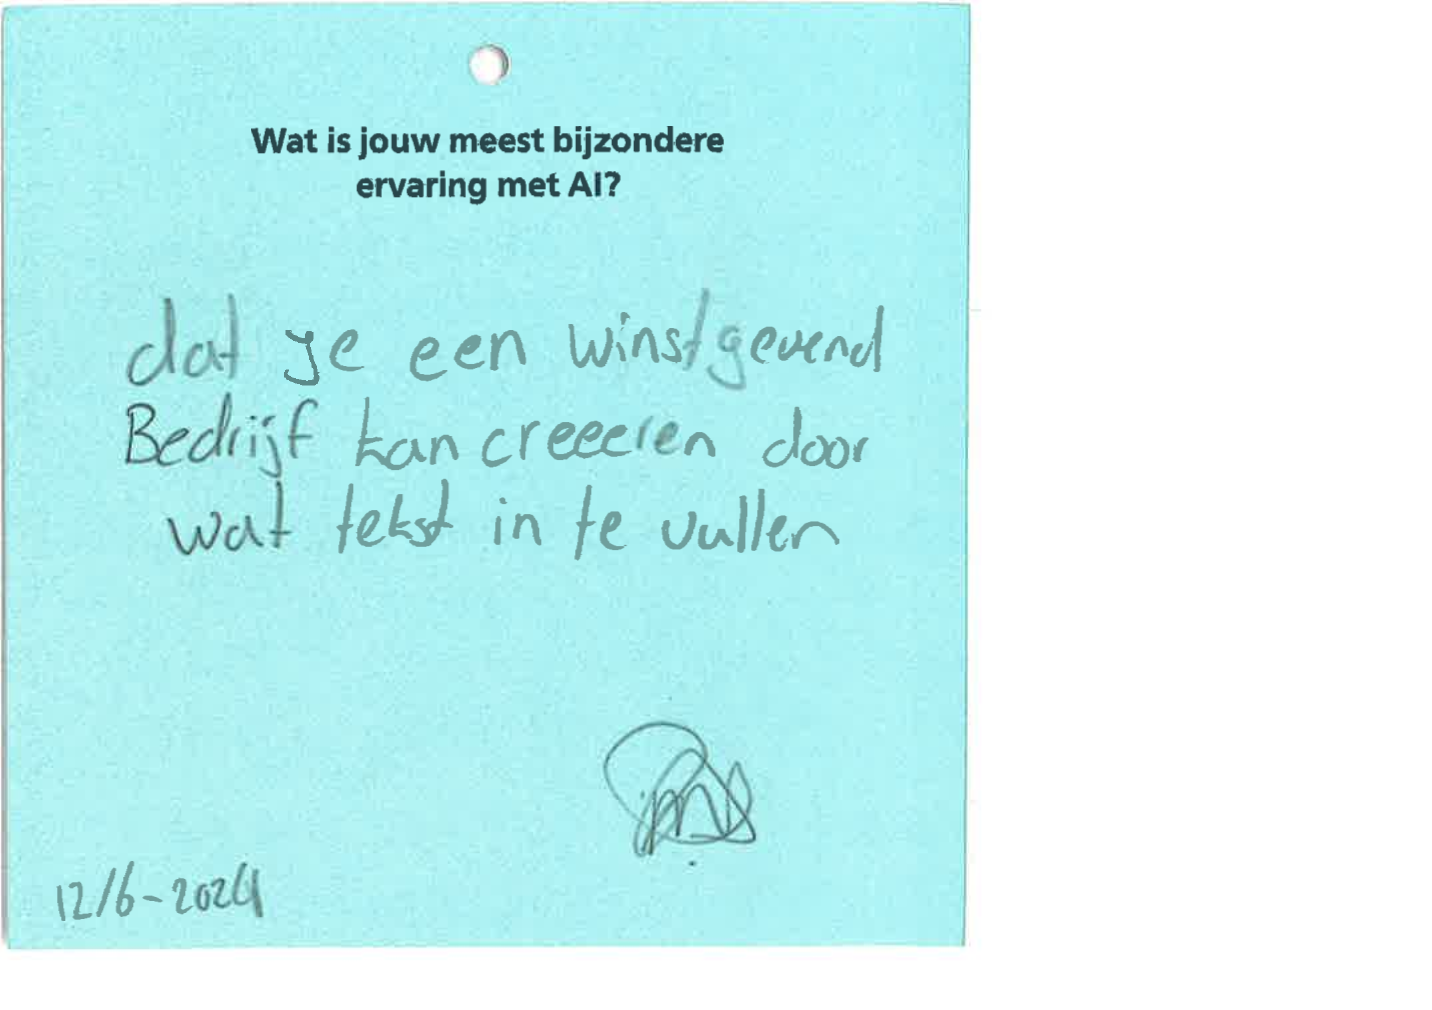 Wat is jouw meest bijzondere
ervaring met AI?
dat je een winstgevend
Bedrijf kan creeeren door
wat tekst in te vullen
12/6-2024